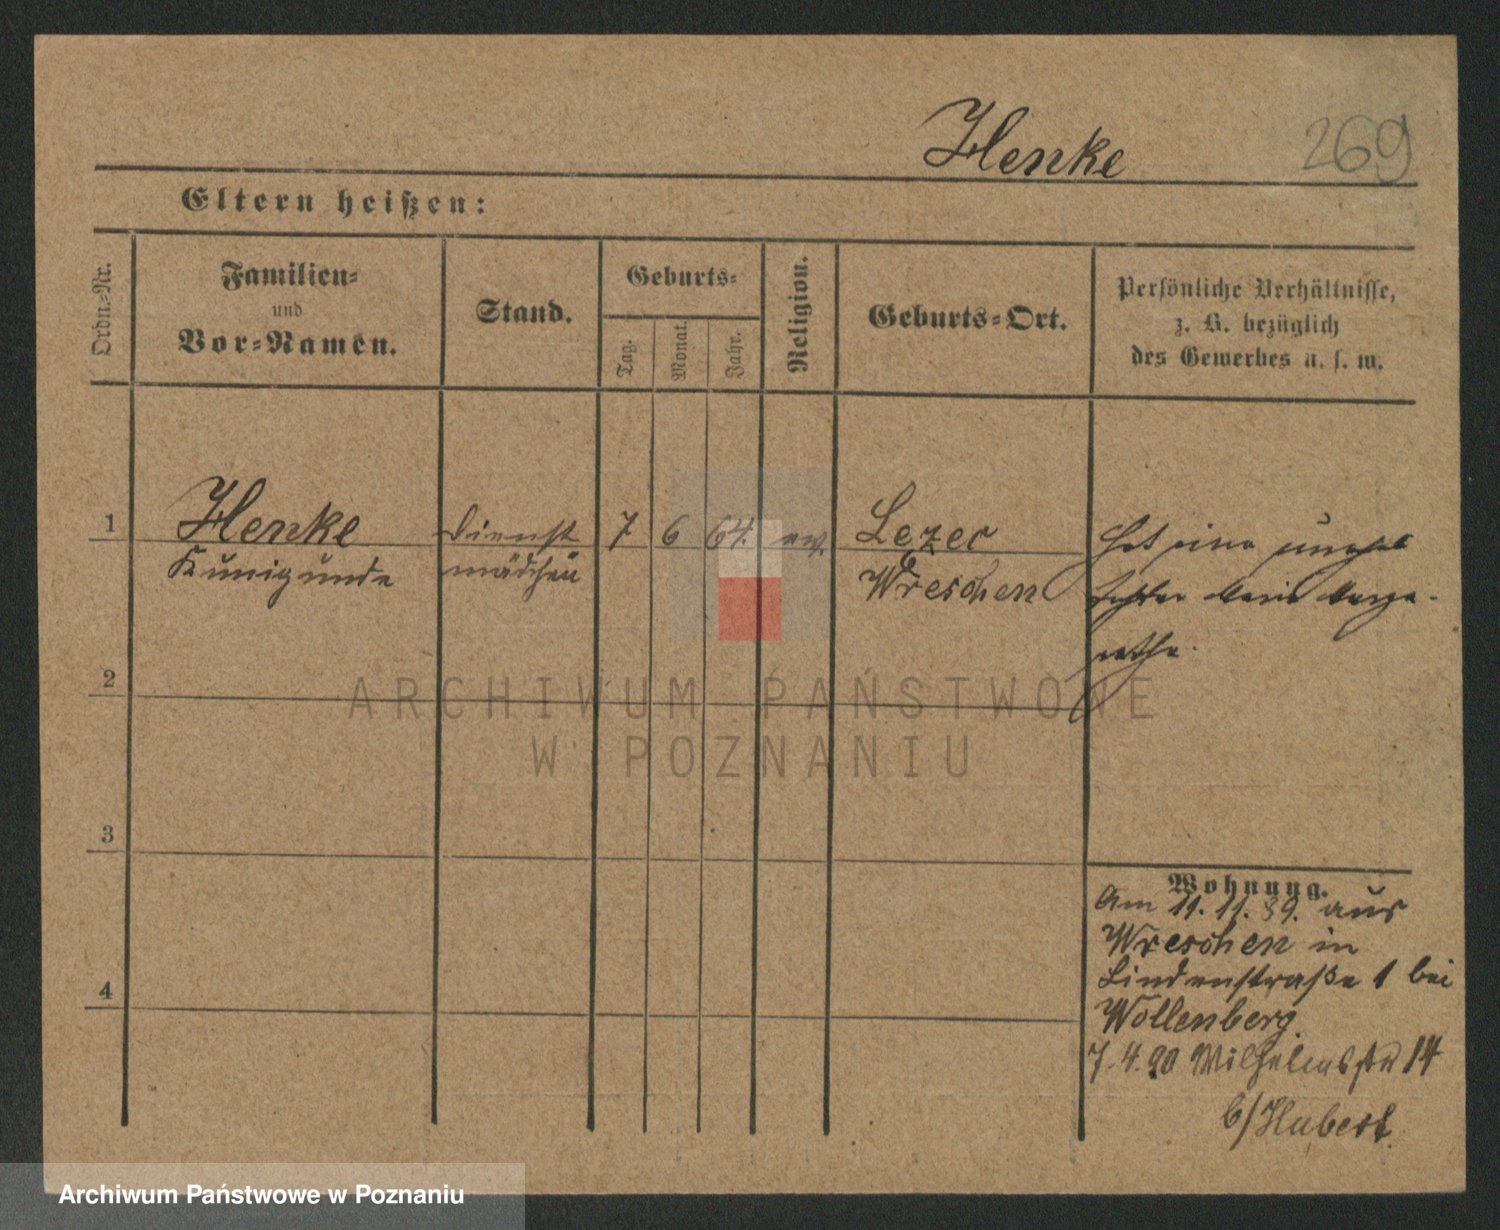 Henke
269
Eltern heißen:
Ordn.-Nr.
Familien-
und
Vor-Namen.
Stand.
Geburts-
Tag.
Monat.
Jahr.
Religion.
Geburts-Ort.
Persönliche Verhältnisse,
z. B. bezüglich
des Gewerbes u. s. w.
1
Henke
Kunigunde
Dienst
mädchen
7
6
64.
ev.
Lezec
Wreschen
Hat eine
2
3
4
Wohnung.
Am 11. 11. 89. aus
Wreschen in
Lindenstraße 1 bei
Wollenberg.
7. 4. 90 Wilhelmstr 14
b/Hubert
ARCHIWUM PAŃSTWOWE
W POZNANIU
Archiwum Państwowe w Poznaniu